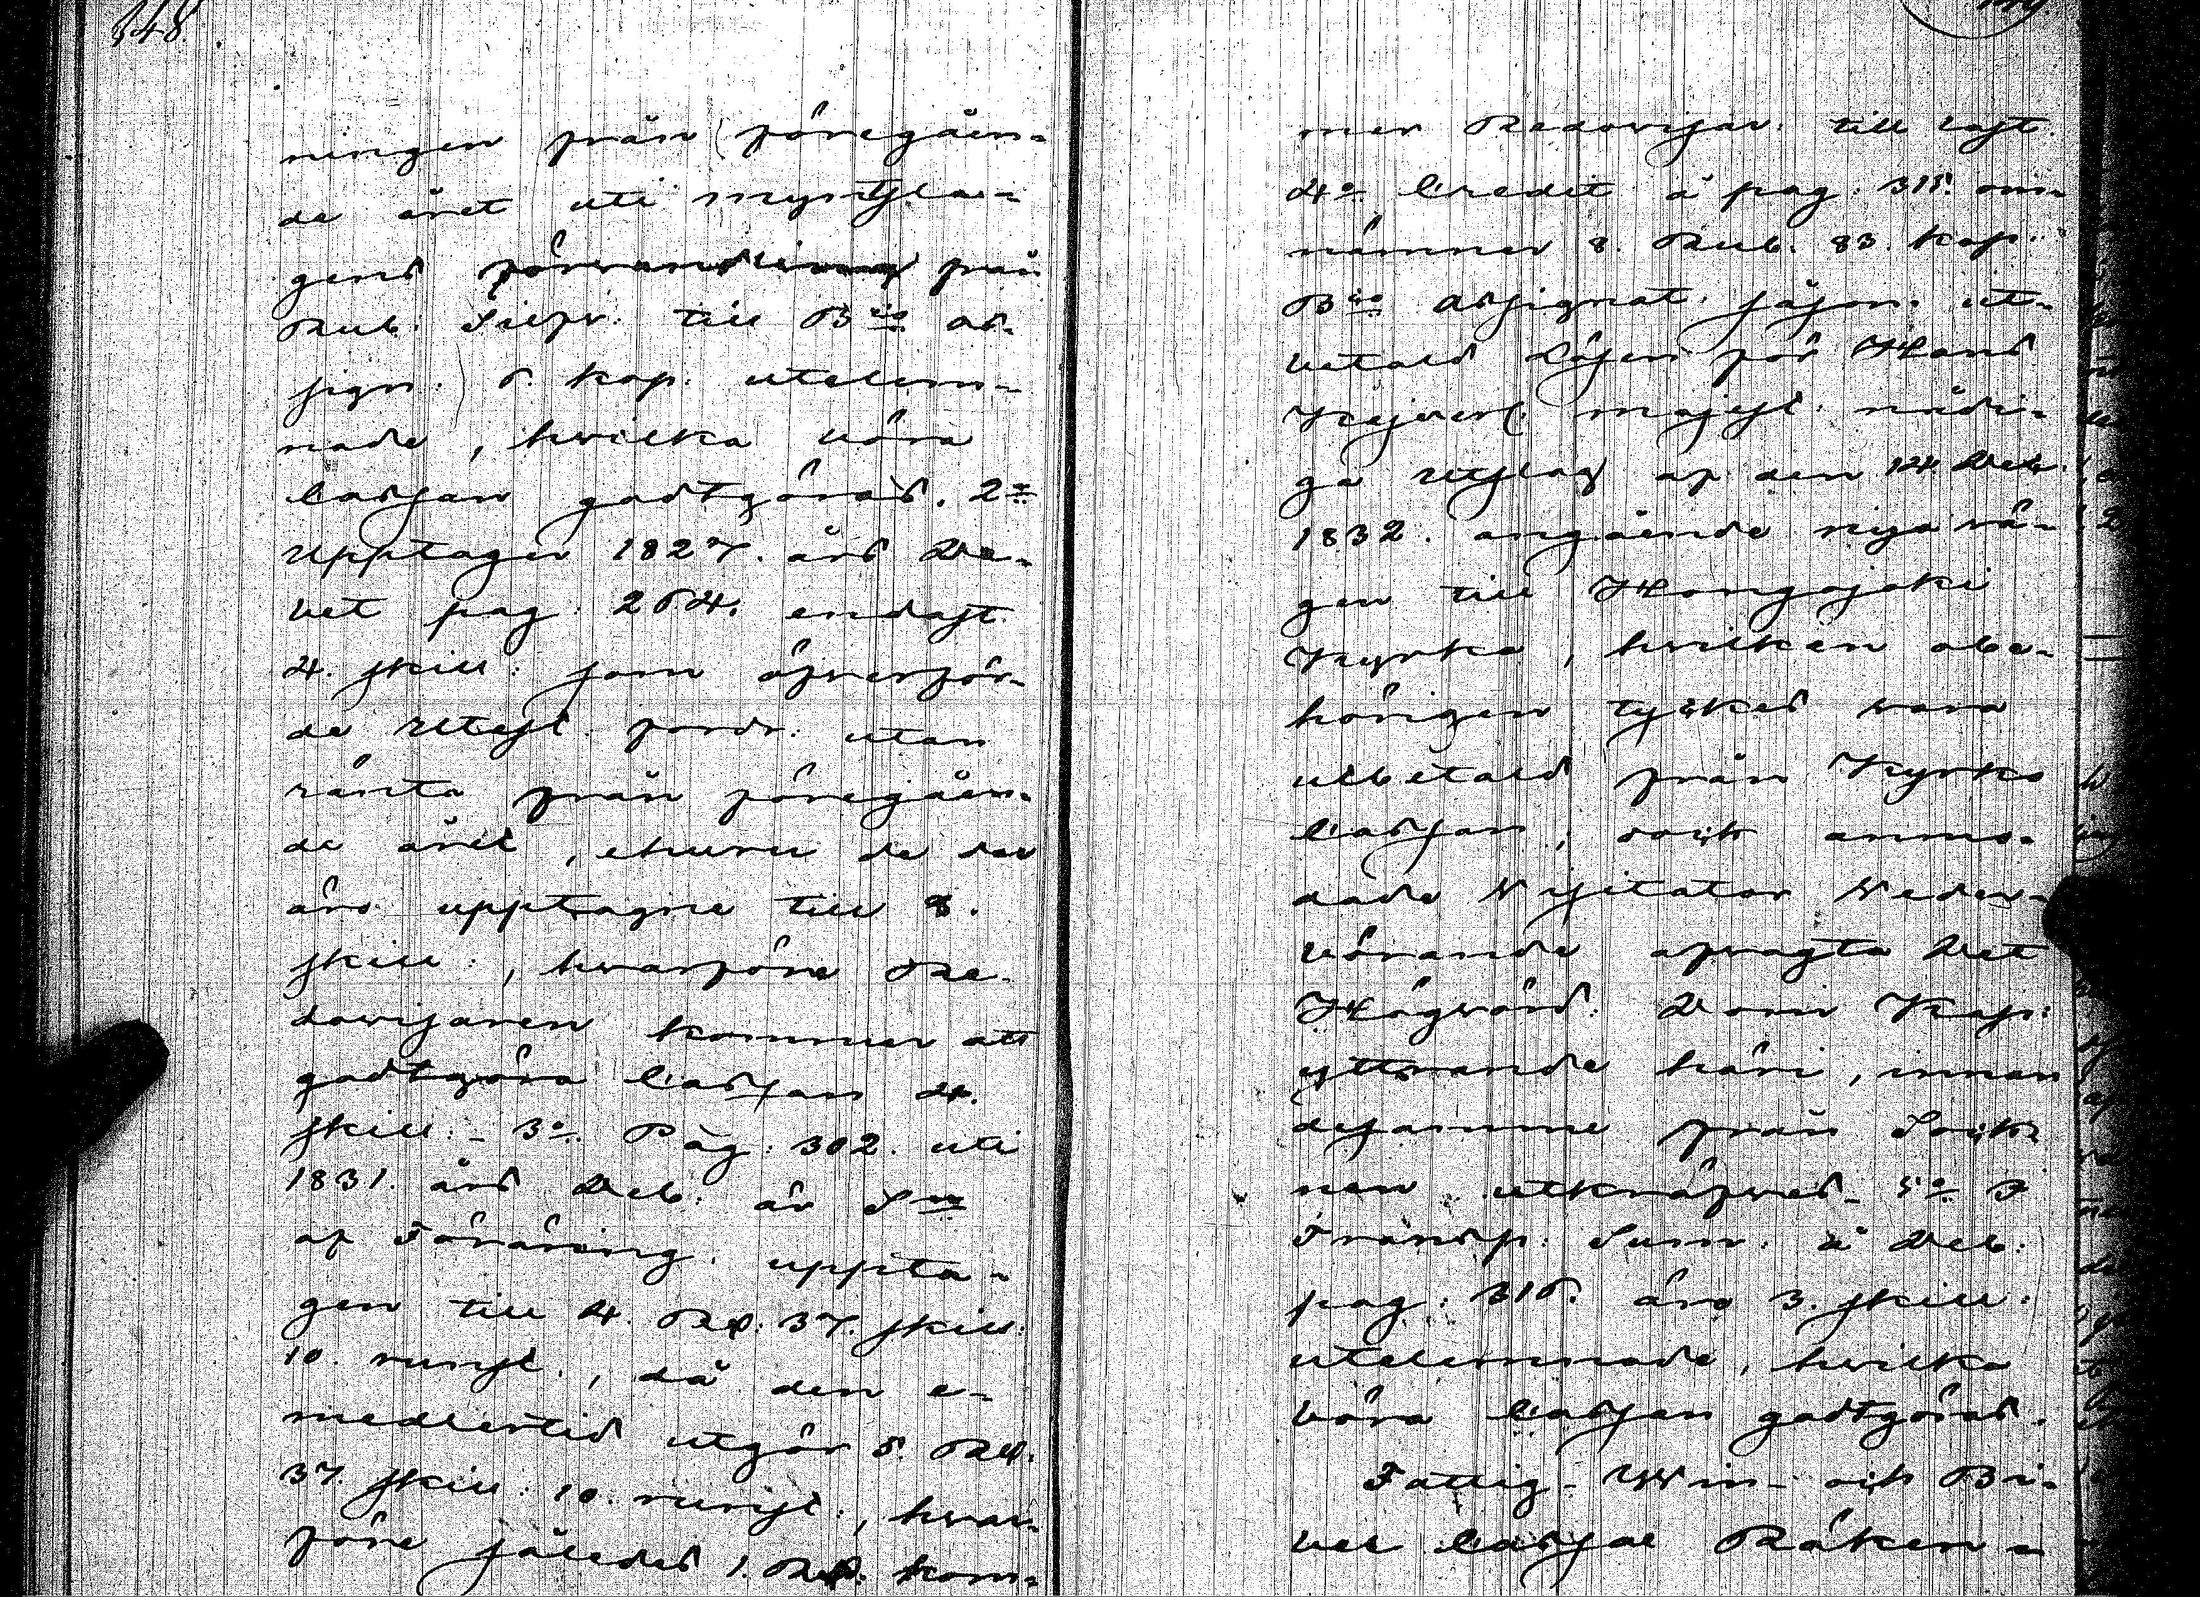 348.
ningen från föregåen-
de året uti myntsla-
gens förvandling från
Rub. Silfv. till B:co as-
sign. 5. kop. utelem-
nade, hvilka böra
Cassan godtgöras. 2:o
Upptager 1827. års De-
bet pag. 254. endast
4. skill: som öfverför-
de Utest. fordr. utan
ränta från föregåen-
de året, ehuru de der
äro upptagne till 8.
skill:, hvarföre Re-
dovisaren kommer att
godtgöra Cassan 4.
skill: - 3:o Pag: 302. uti
1831. års Deb: är S:a
af Föräring. uppta-
gen till 4. Rd: 37. skill:
10. runst., då den e-
medlertid utgör 5. Rd.
37. skill: 10. runst:, hvar-
före således 1. Rd. kom-
mer Redovisar. till last.
4:o Credit å pag: 315. om-
nämner 8. Rub. 83. kop.
B:co Assignat. såsom ut-
betald Lösen för Hans
Kejserl. Majest. nådi-
ga Utslag af den 14 Deb.
1832. angående nya vä-
gen till Hongojoki
Kyrka, hvilken obe-
hörigen tyckes vara
utbetald från Kyrko
Cassan; och anmo-
dade Visitator Veder-
börande afvagta Det
Högvörd. Dom Kap:
yttrande häri, innan
desamme från Sock-
nen utkräfves. 5:o I
Transp: Sum: å Deb:
pag: 316. äro 3. skill:
utelemnade, hvilka
böra Cassan godtgöras.
Fattig- Vin- och Bi-
bel Cassae Räken-